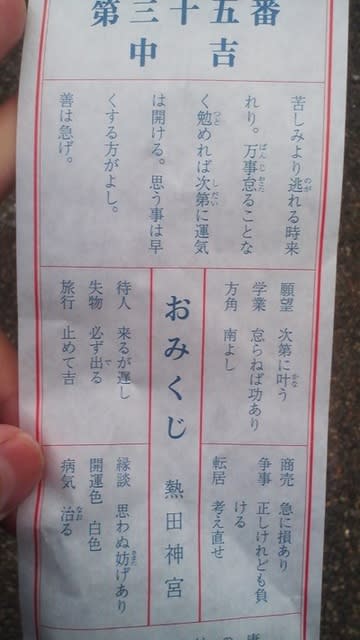 第三十五番
中吉
苦しみより逃れる時来
れり。万事怠ることな
く勉めれば次第に運気
は開ける。思う事は早
くする方がよし。
善は急げ。
願望 次第に叶う
学業 怠らねば功あり
方角 南よし
商売 急に損あり
争事 正しけれども負
ける
転居 考え直せ
おみくじ 熱田神宮
待人 来るが遅し
失物 必ず出る
旅行 止めて吉
縁談 思わぬ妨げあり
開運色 白色
病気 治る